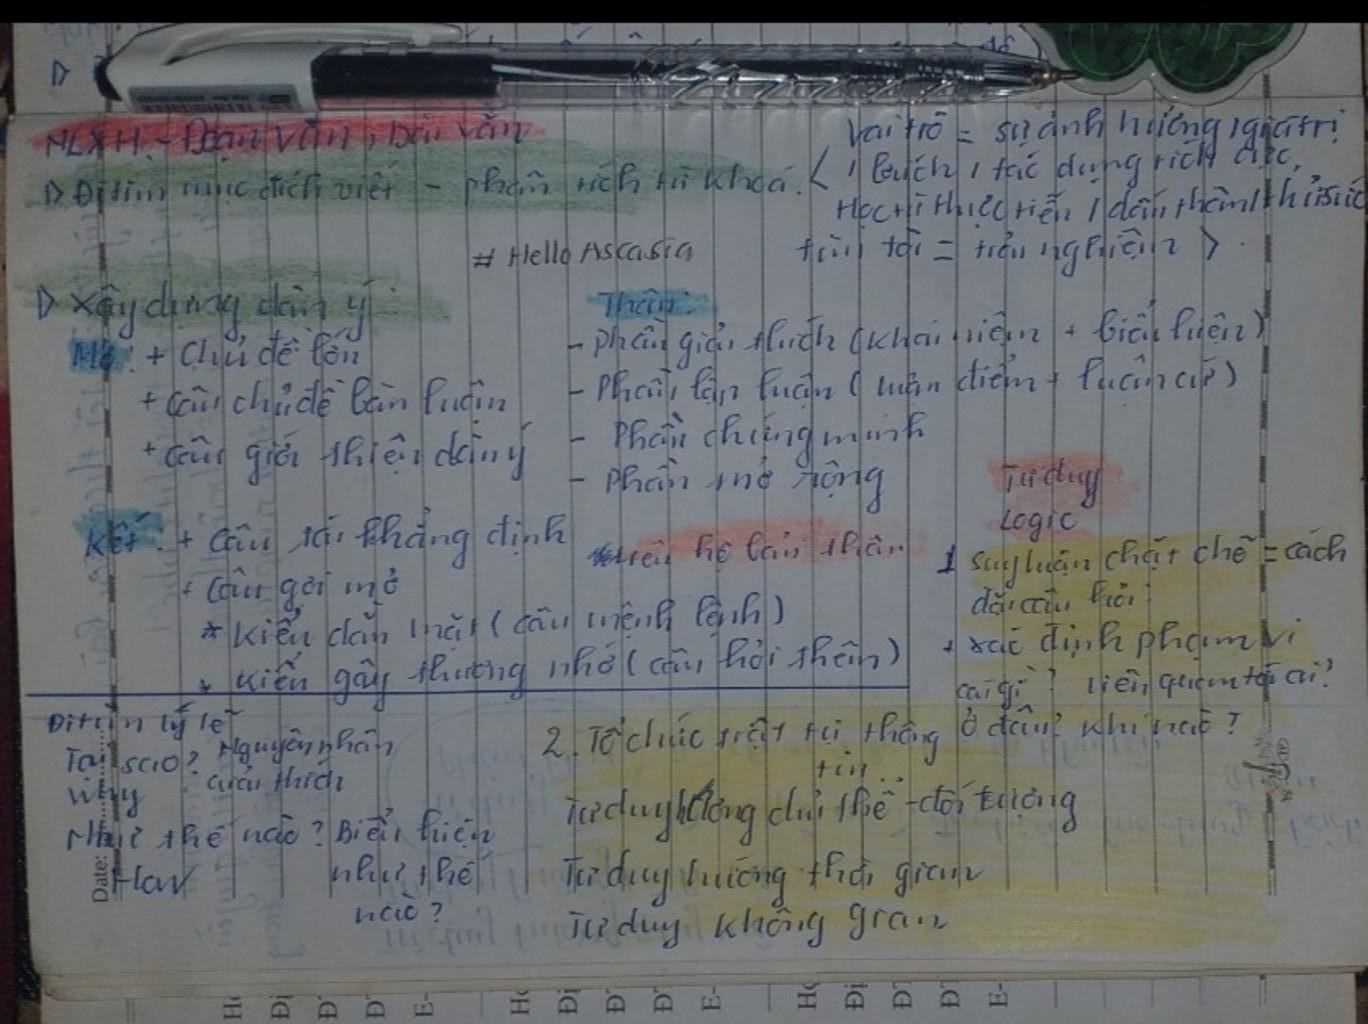 NLXH - Đoạn văn, bài văn
▷ Đi tìm mục đích viết - phân tích từ khoá.
Vai trò = sự ảnh hưởng, giá trị
< / lợi ích / tác dụng tích cực,
Học từ thực tiễn / dấn thân / thử sức
tìm tòi = trải nghiệm >.
# Hello Ascasia
▷ Xây dựng dàn ý:
Mở: + Chủ đề lớn
+ câu chủ đề bàn luận
+ câu giới thiệu dàn ý
Thân:
- Phần giải thích (khái niệm + biểu hiện)
- Phần lập luận (luận điểm + luận cứ)
- Phần chứng minh
- Phần mở rộng
Kết: + câu tái khẳng định
+ câu gợi mở
* Kiểu dằn mặt (câu mệnh lệnh)
* Kiểu gây thương nhớ (câu hỏi thêm)
* Liên hệ bản thân
Tư duy
Logic
1 suy luận chặt chẽ = cách
đặt câu hỏi
+ xác định phạm vi
cái gì? liên quan tới ai?
Ở đâu? khi nào?
Đi tìm lý lẽ
Tại sao? Nguyên nhân
Why giải thích
Như thế nào? Biểu hiện
How như thế
nào?
2. Tổ chức trật tự thông
tin
Tư duy hướng chủ thể - đối tượng
Tư duy hướng thời gian
Tư duy không gian
Date:
Đ
Đ
E-
Đ
Đ
E-
Đ
Đ
E-